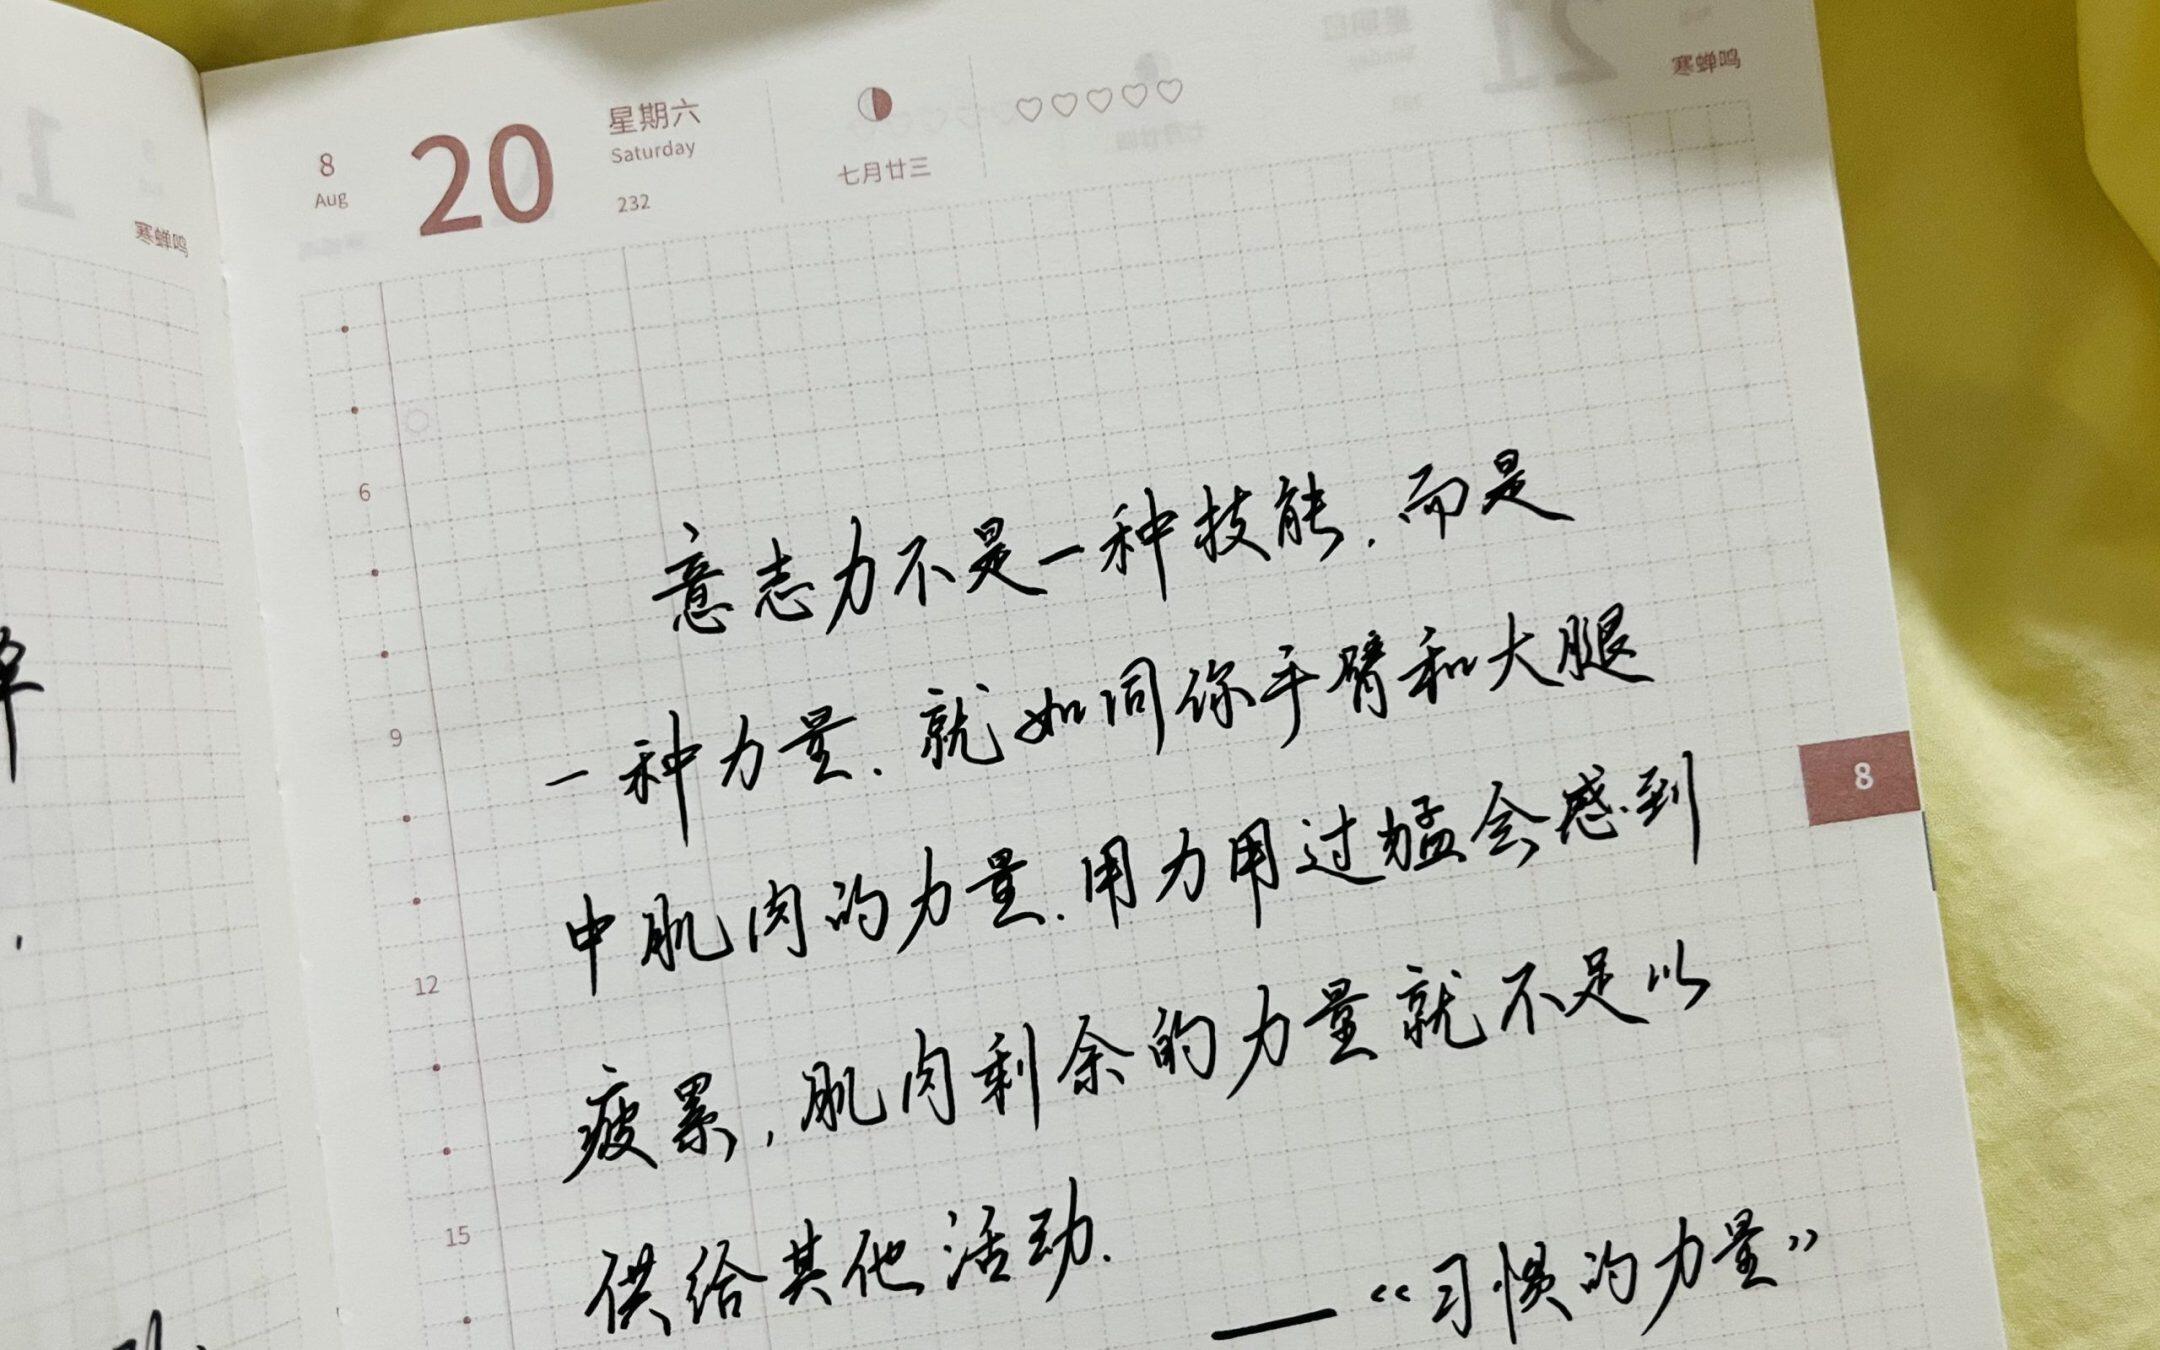 8
Aug
20
星期六
Saturday
232
七月廿三
寒蝉鸣
寒蝉鸣
6
9
12
15
8
意志力不是一种技能.而是
一种力量.就如同你手臂和大腿
中肌肉的力量.用力用过猛会感到
疲累,肌肉剩余的力量就不足以
供给其他活动.
——“习惯的力量”